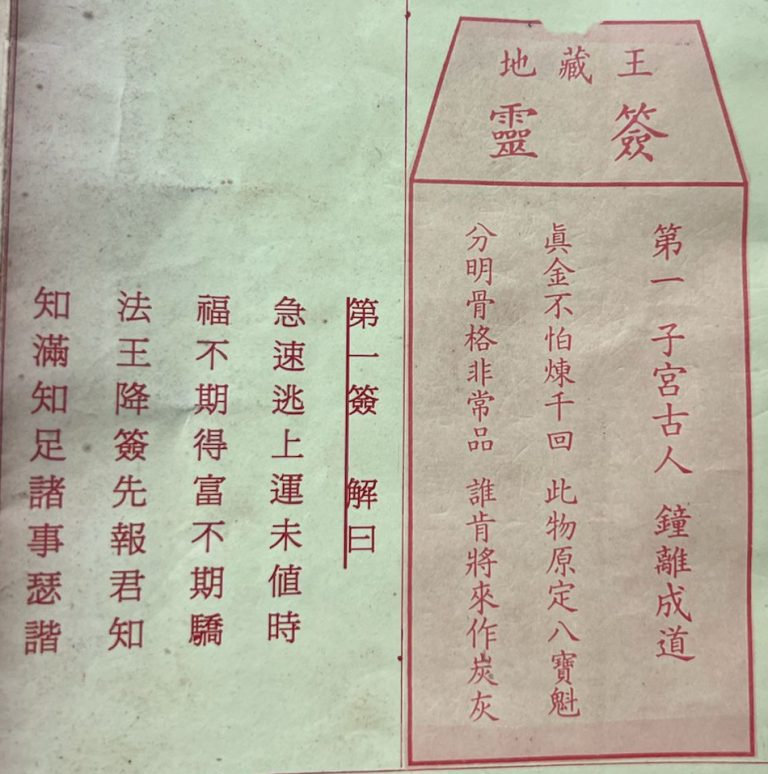 地藏王
靈簽
第一 子宮古人 鐘離成道
眞金不怕煉千回 此物原定八寶魁
分明骨格非常品 誰肯將來作炭灰
第一簽 解曰
急速逃上運未值時
福不期得富不期驕
法王降簽先報君知
知滿知足諸事瑟諧